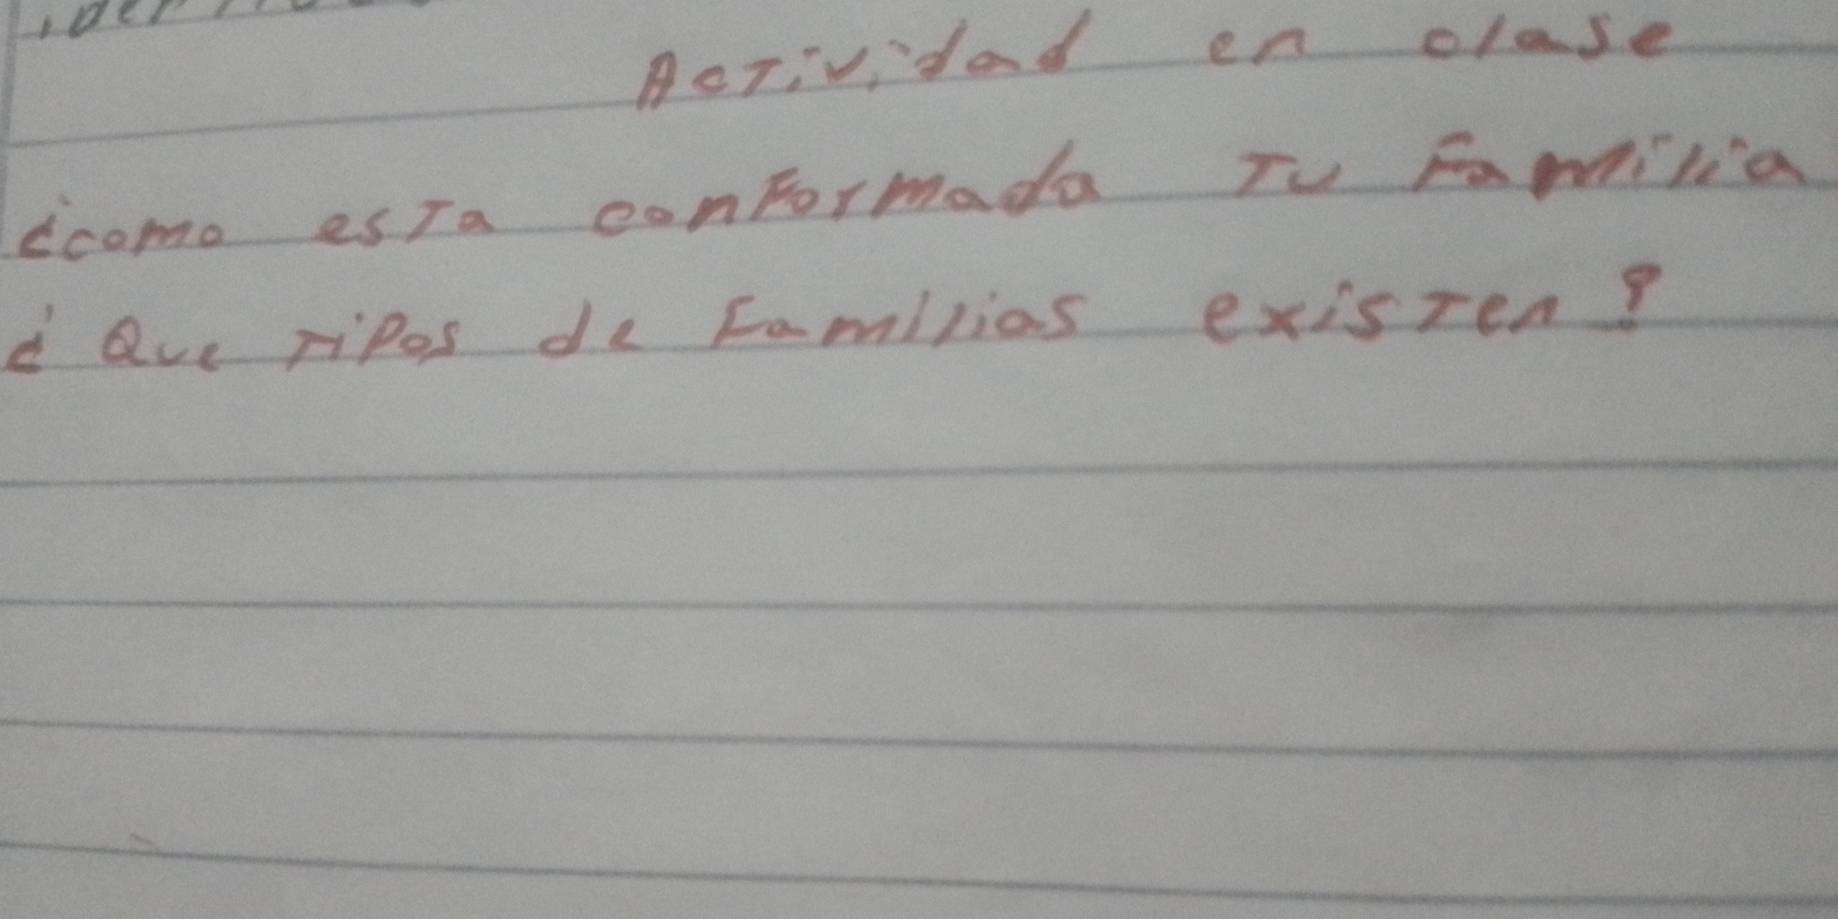 Actividad en clase
¿como esta conformada tu Familia
¿ Que tipos de Familias existen?